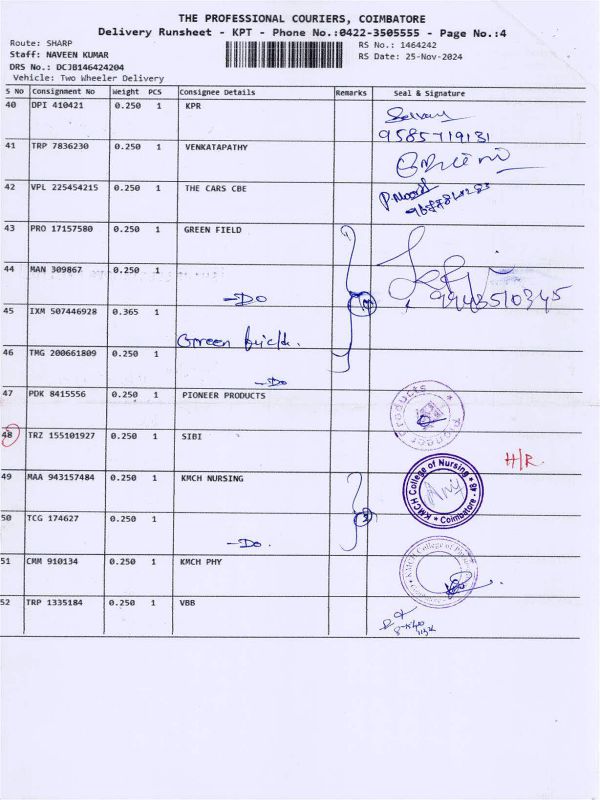 THE PROFESSIONAL COURIERS, COIMBATORE
Delivery Runsheet - KPT - Phone No.:0422-3505555 - Page No.:4
Route: SHARP
RS No.: 1464242
Staff: NAVEEN KUMAR
RS Date: 25-Nov-2024
DRS No.: DCJB146424204
Vehicle: Two Wheeler Delivery
S No Consignment No Weight PCS Consignee Details Remarks Seal & Signature
40 DPI 410421 0.250 1 KPR
9585719131
41 TRP 7836230 0.250 1 VENKATAPATHY
42 VPL 225454215 0.250 1 THE CARS CBE
43 PRO 17157580 0.250 1 GREEN FIELD
44 MAN 309867 0.250 1
-Do
9943510345
45 IXM 507446928 0.365 1
Green
46 TMG 200661809 0.250 1
-Do
47 PDK 8415556 0.250 1 PIONEER PRODUCTS
Pioneer Products
48 TRZ 155101927 0.250 1 SIBI
H/R.
49 MAA 943157484 0.250 1 KMCH NURSING
KMCH College of Nursing * Coimbatore - 48 *
50 TCG 174627 0.250 1
-Do.
51 CMM 910134 0.250 1 KMCH PHY
KMCH College of
52 TRP 1335184 0.250 1 VBB